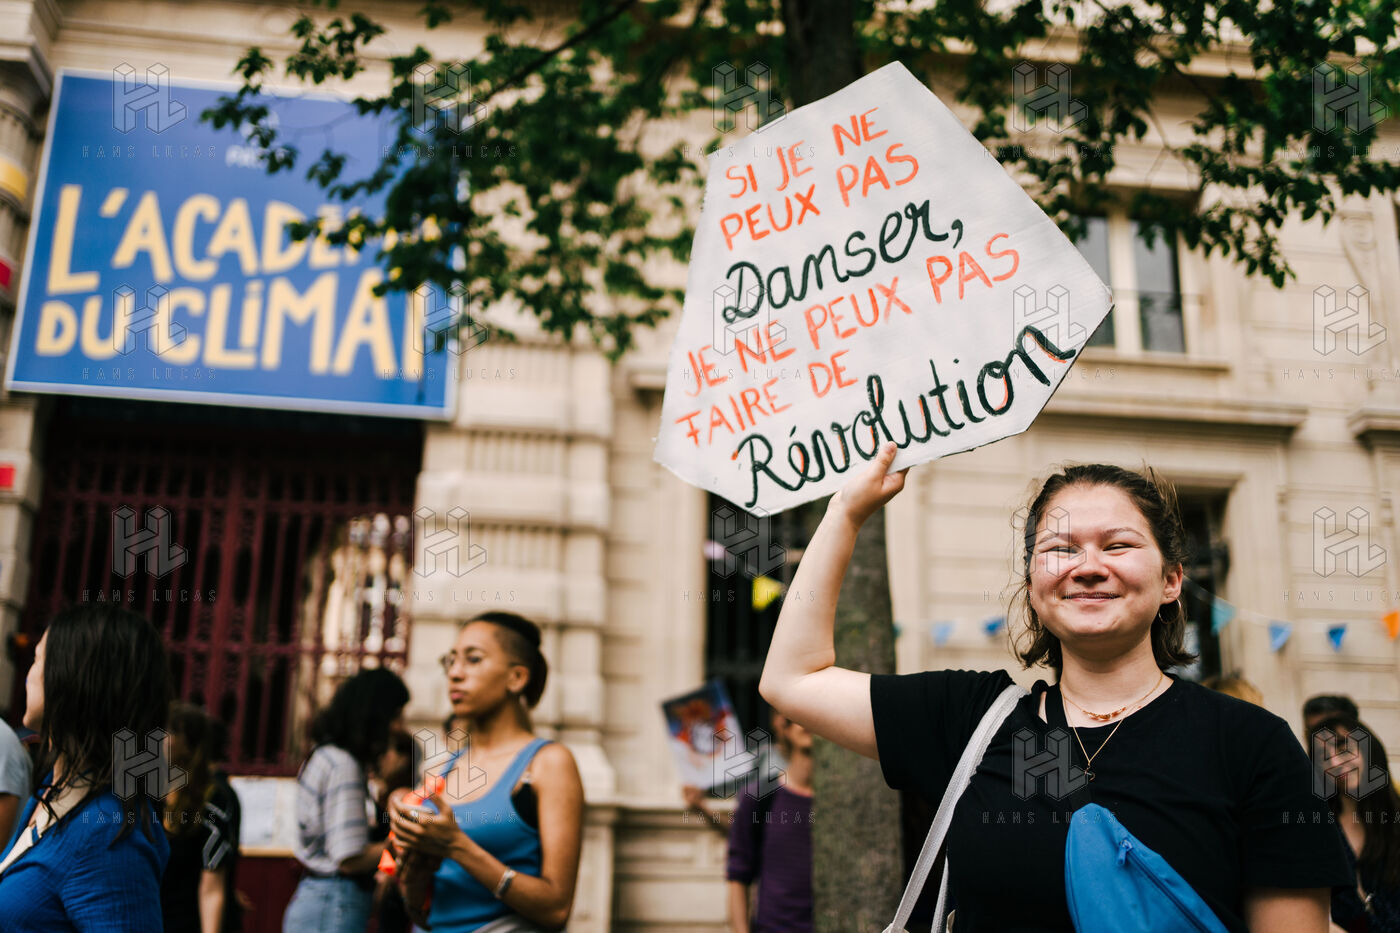 L'ACADÉMIE
DU CLIMAT
SI JE NE
PEUX PAS
Danser,
JE NE PEUX PAS
FAIRE DE
Révolution
HANS LUCAS